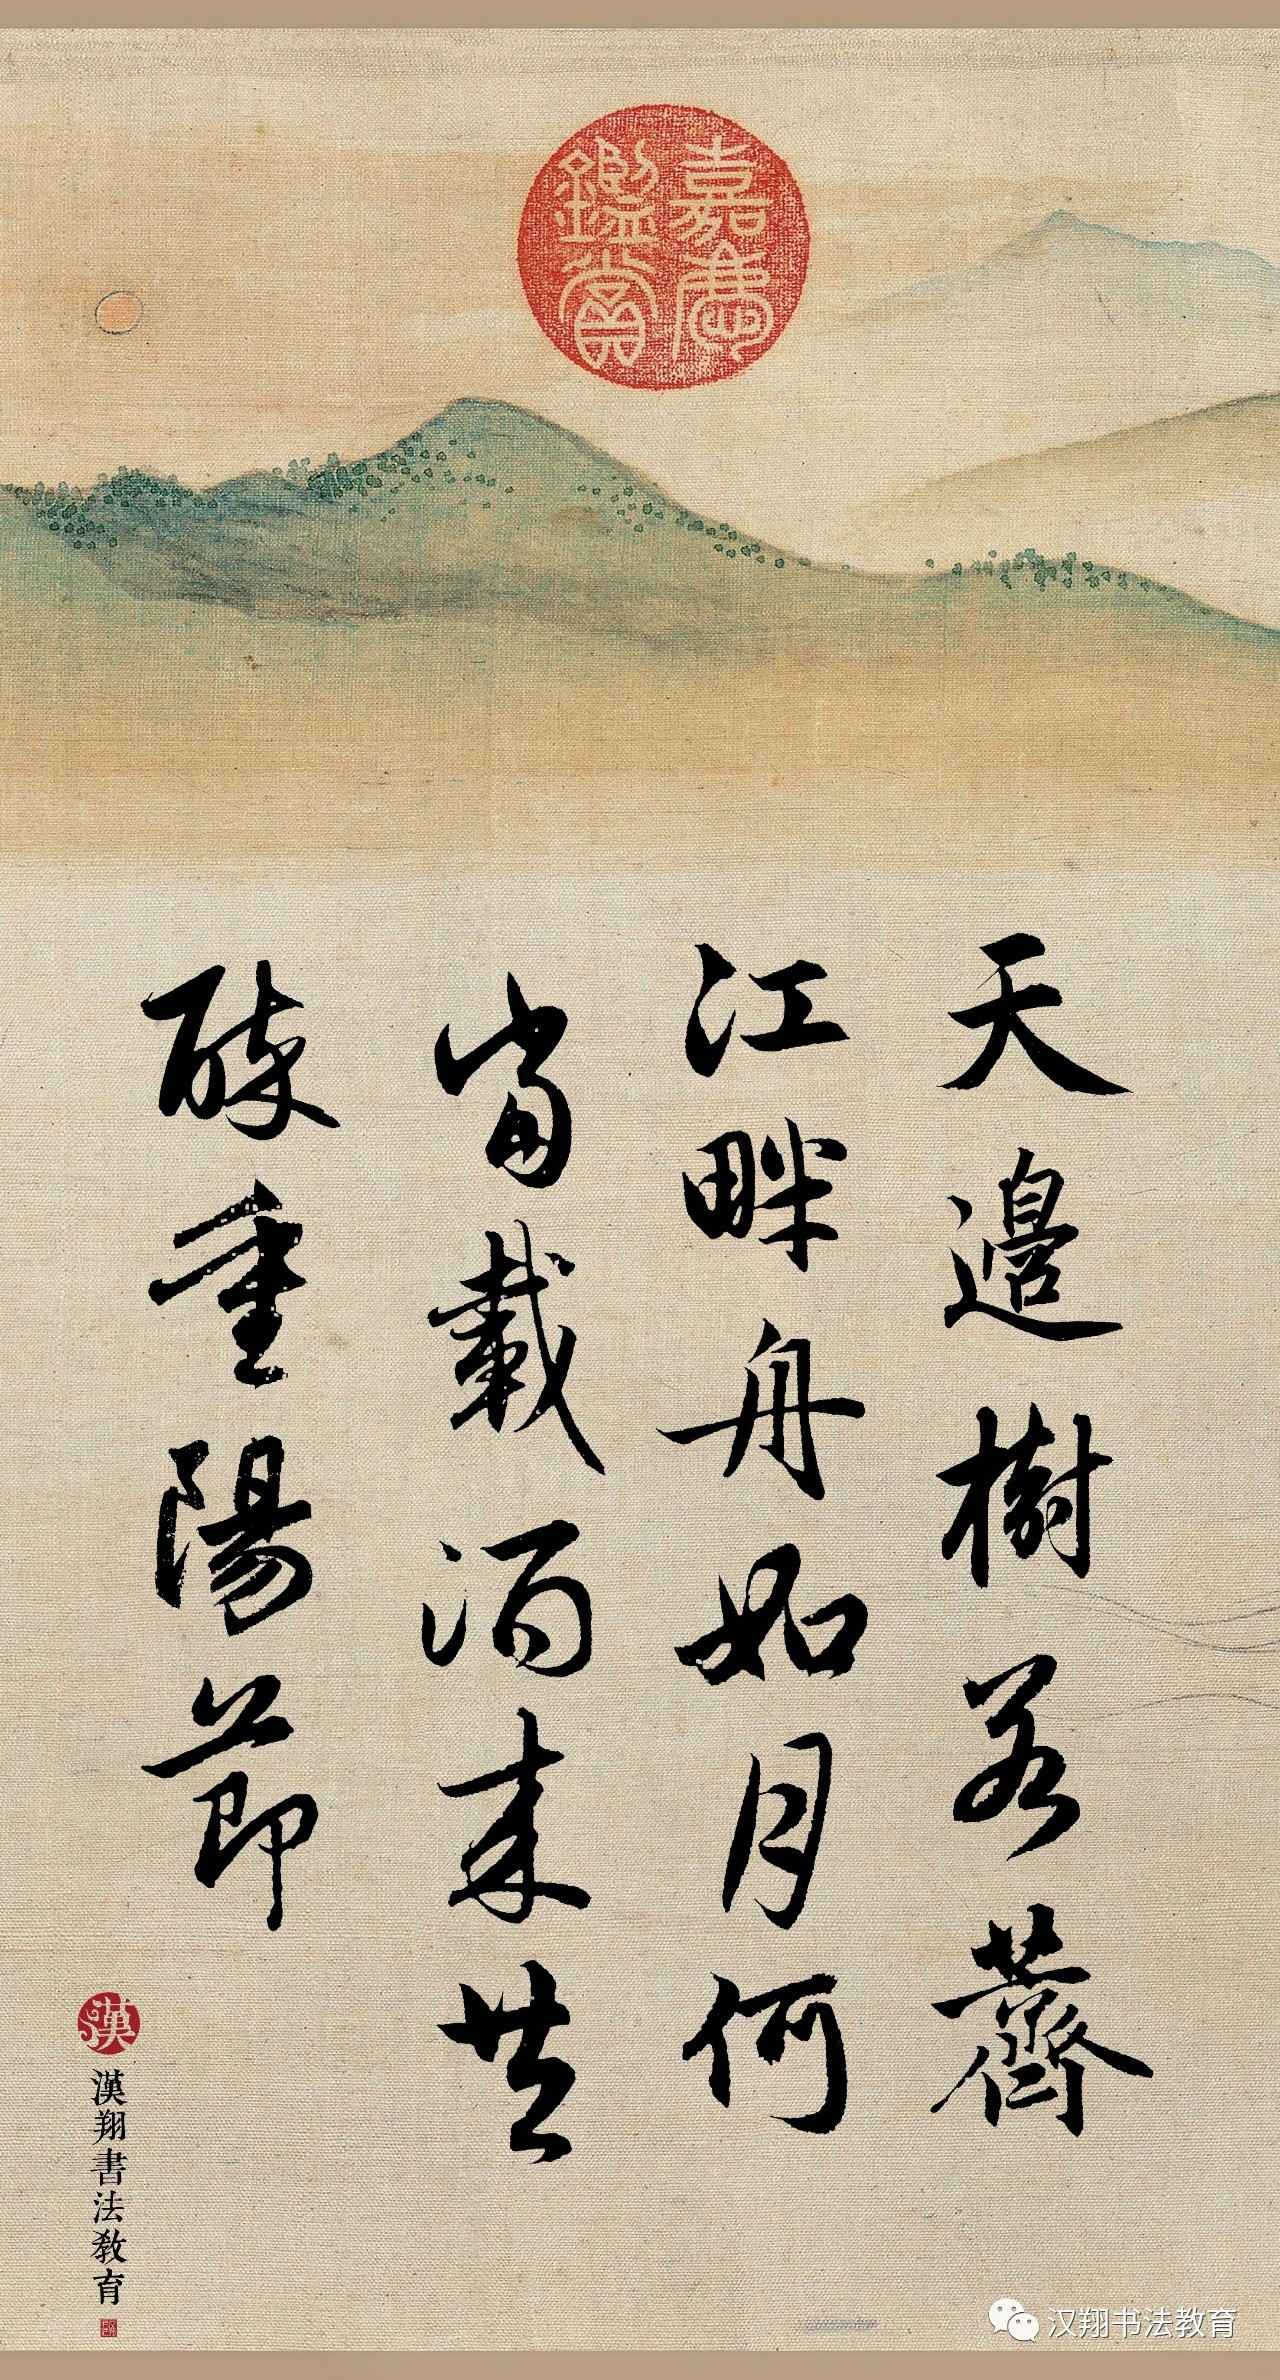 嘉慶
鑑賞
天邊樹若薺
江畔舟如月何
當載酒來共
醉重陽節
漢
漢翔書法教育
汉翔书法教育